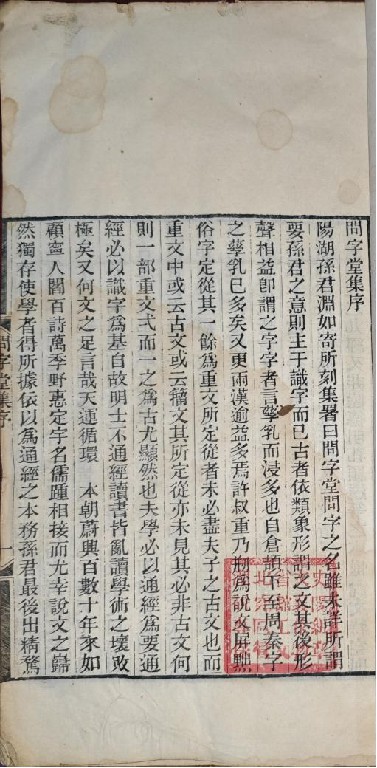 問字堂集序
陽湖孫君淵如寄所刻集署曰問字堂問字之名雖未詳所謂
要孫君之意則主于識字而已古者依類象形謂之文其後形
聲相益卽謂之字字者言孳乳而浸多也自倉頡下至周秦字
之孳乳已多矣又更兩漢逾益多焉許叔重乃刱爲說文屏黜
俗字定從其一餘爲重文所定從者未必盡夫子之古文也而
重文中或云古文或云籒文其所定從亦未見其必非古文何
則一部重文弌而一之爲古尤顯然也夫學必以通經爲要通
經必以識字爲基自故明士不通經讀書皆亂讀學術之壞敗
極矣又何文之足言哉天運循環　本朝蔚興百數十年來如
顧甯人閻百詩萬季野惠定宇名儒踵相接而尤幸說文之巋
然獨存使學者得所據依以爲通經之本務孫君最後出精騖
問字堂集序